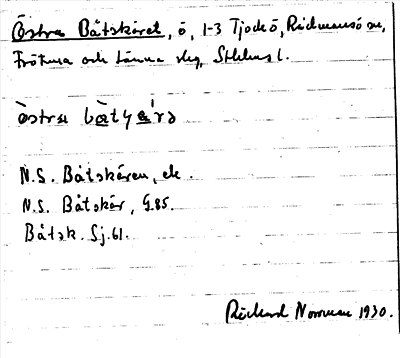 Östra Båtskäret, ö, 1-3 Tjockö, Rådmansö sn,
Frötuna och Länna skg, Sthlms l.
östra båtʃä̀rə
N.S. Båtskären, ek.
N.S. Båtskär, G.85.
Båtsk. Sj.61.
Rickard Norrman 1930.